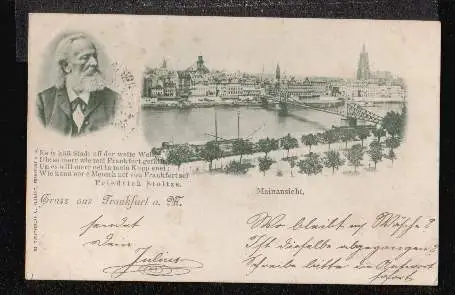 Es is kää Stadt uff der weite Welt,
Die so merr wie mei Frankfort gefällt,
Un es will merr net in mein Kopp enei:
Wie kann nor e Mensch net von Frankfort sei
Friedrich Stoltze.
Mainansicht.
Gruss aus Frankfurt a. M.
sendet
Dein
Julius
Wo bleibt m. Wäsche?
Ist dieselbe abgegangen?
Schreibe bitte die Antwort
sofort